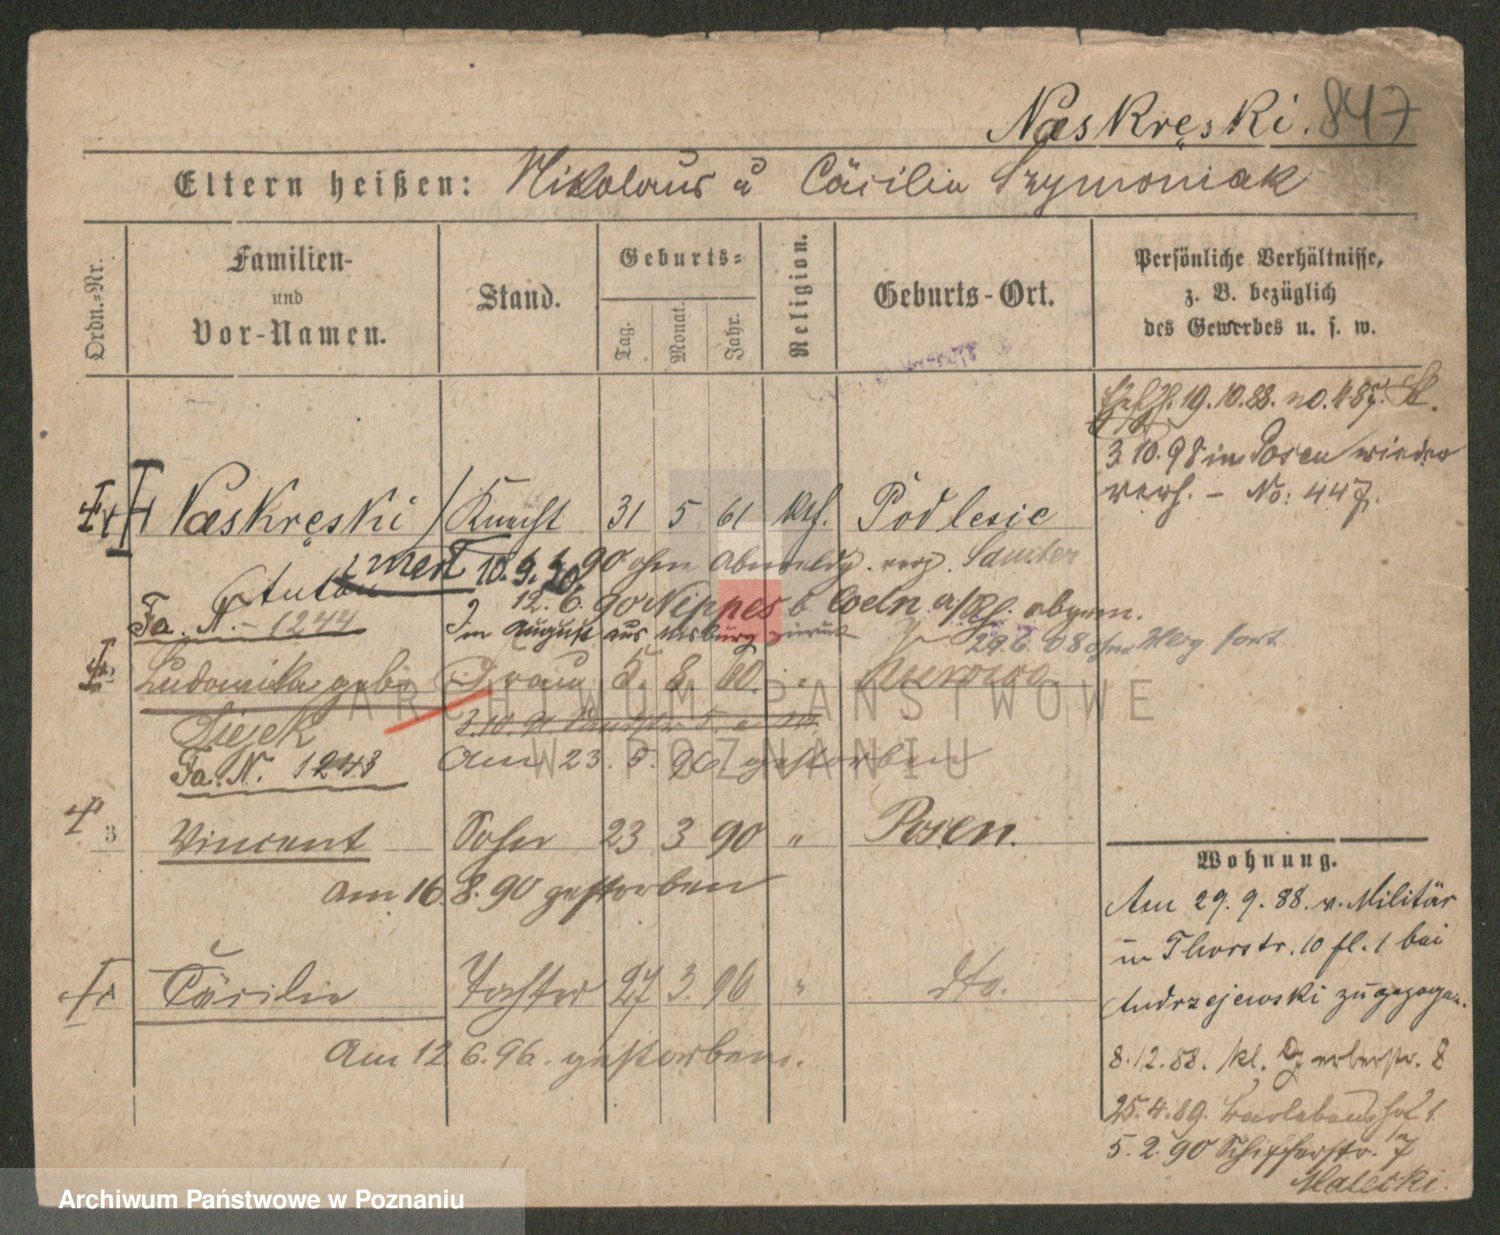 Naskręski. 847
Eltern heißen: Nikolaus u Cäcilia Szymoniak
Ordn.-Nr.
Familien-
und
Vor-Namen.
Stand.
Geburts-
Tag.
Monat.
Jahr.
Religion.
Geburts-Ort.
Persönliche Verhältnisse,
z. B. bezüglich
des Gewerbes u. s. w.
19.10.88. no. 487.
3.10.98 in Posen wieder
verh. - No: 447.
Naskręski / Knecht 31 5 61 kth. Podlesie
Anton 10.9. 90 ohne Abmeldg. verz. Samter
Fa. N. - 1244
12.6.90 Nippes b. Coeln a/Rh. abgem.
Im August aus zurück
29.6.08 ohne Mldg fort
Ludowika geb. Frau 5. 8 60. "
Fa. N. 1243
Am 23. 5. 96 gestorben
3 Vincent Sohn 23 3 90 " Posen.
am 16.8.90 gestorben
Cäcilie Tochter 27 3. 96 " dto.
Am 12 6.96. gestorben.
Wohnung.
Am 29.9.88. v. Militär
in Thorstr. 10 fl. 1 bei
Andrzejewski zugezogen.
8.12.88. kl. Gerberstr. 8
25.4.89.
5.2.90 Schifferstr. 7
Malecki.
ARCHIWUM PAŃSTWOWE
W POZNANIU
Archiwum Państwowe w Poznaniu